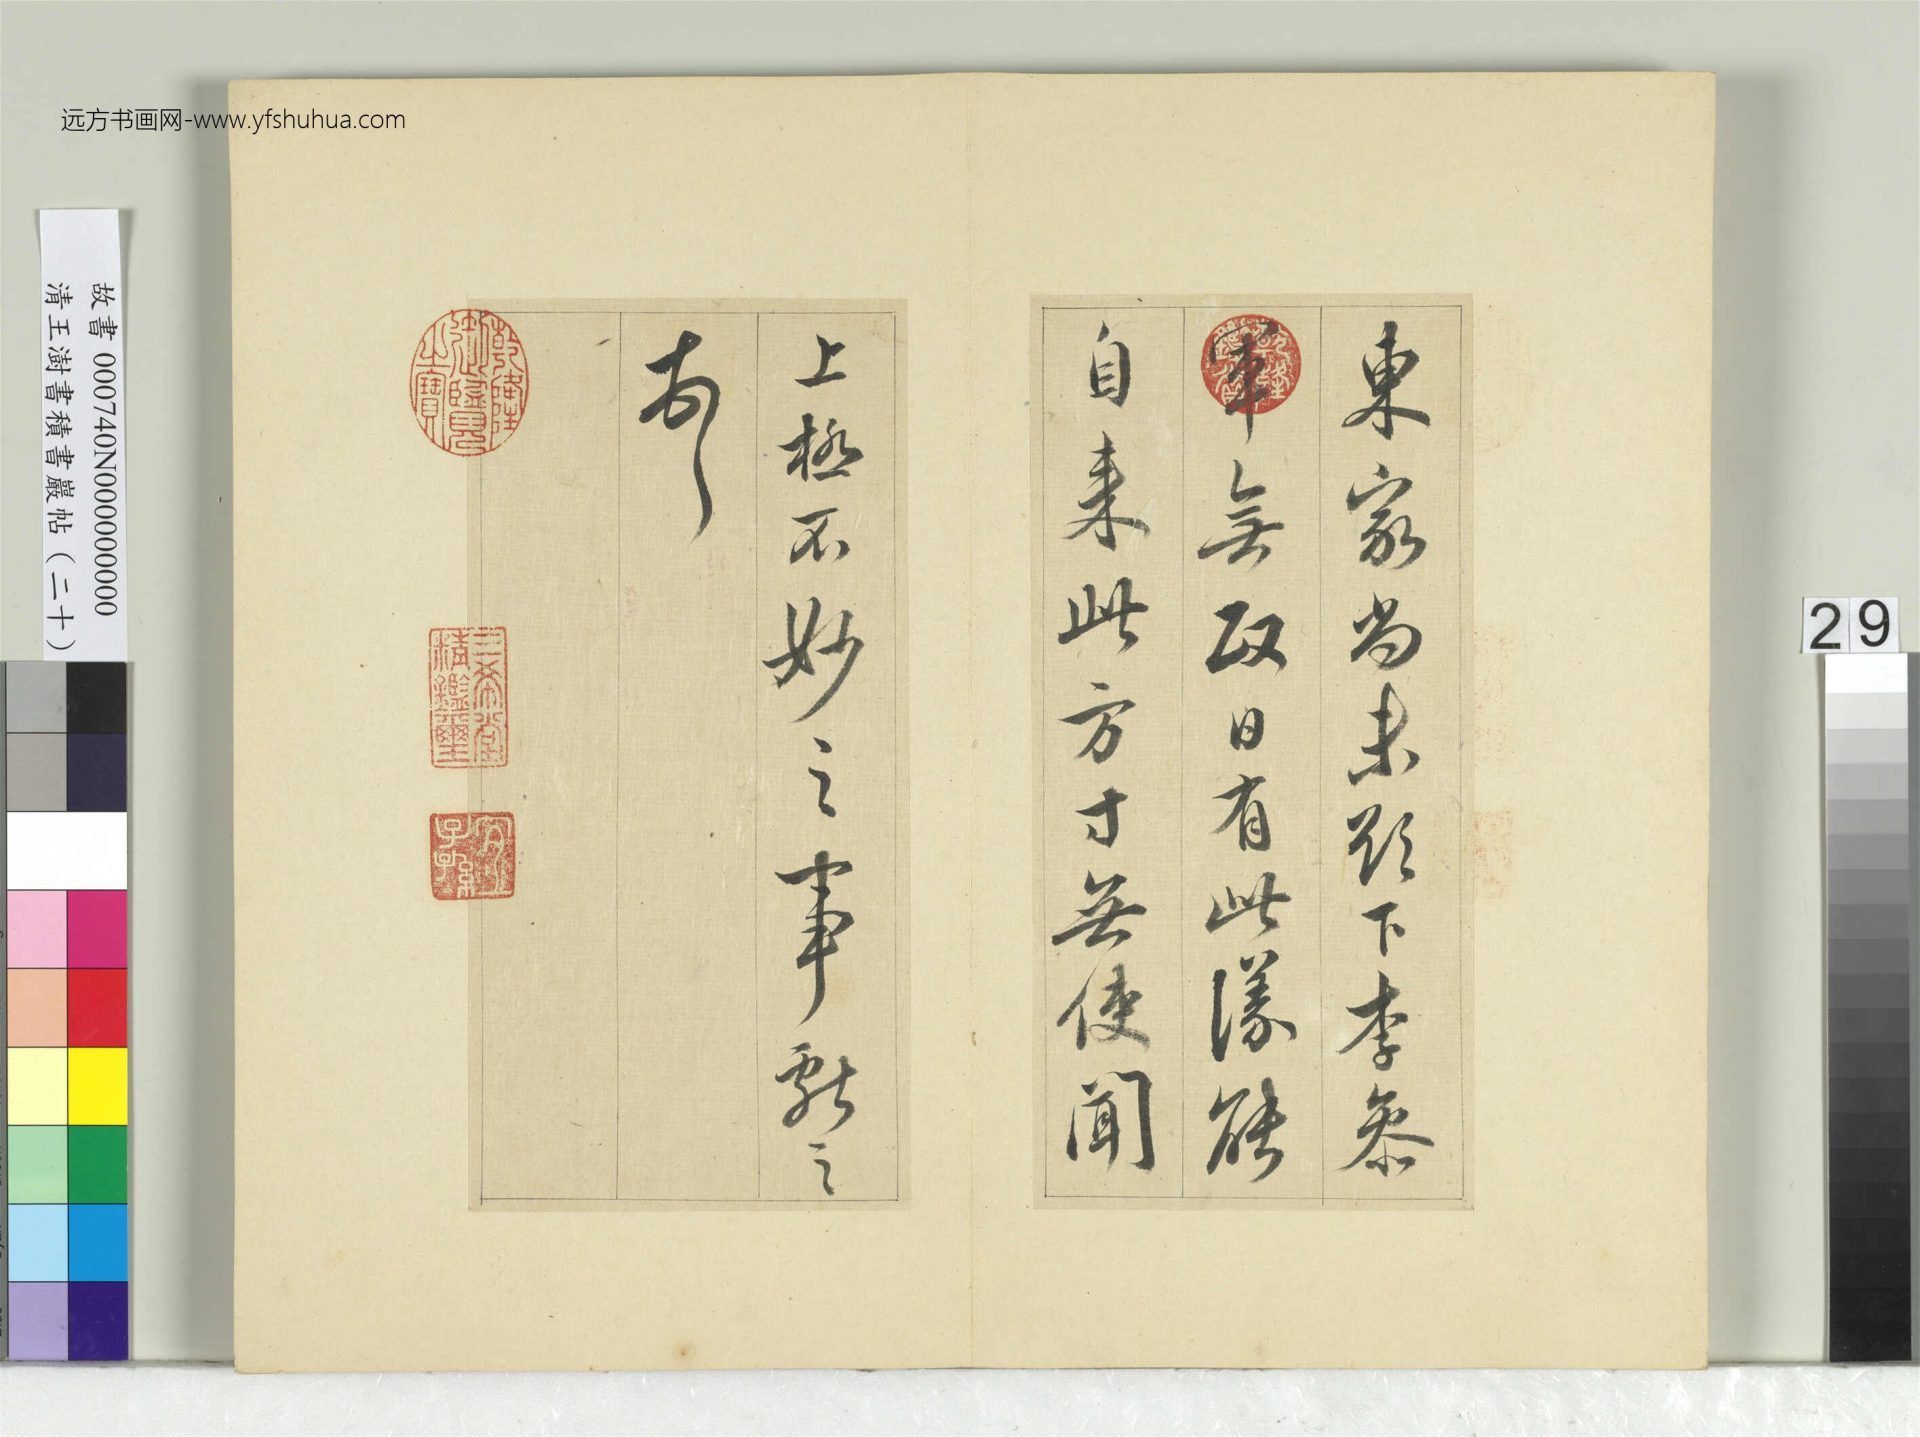 远方书画网-www.yfshuhua.com
故書 000740N000000000
清王澍書積書巖帖(二十)
29
東家尚未下李參
軍無日有此議能
自来此方寸無使聞
上極不妙之事獻之
乾隆鑑賞
乾隆御覽之寶
三希堂精鑑璽
宜子孫